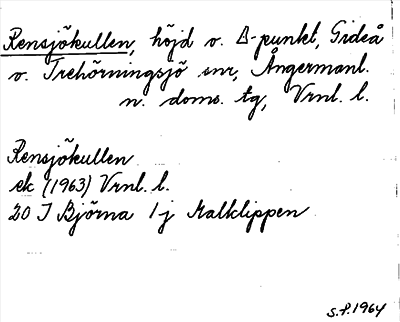 Rensjökullen, höjd o. Δ-punkt, Gideå
o. Trehörningsjö snr, Ångermanl.
n. doms. tg, Vrnl. l.
Rensjökullen
ek (1963) Vrnl. l.
20 I Björna 1 j Kalklippen
S.P. 1964